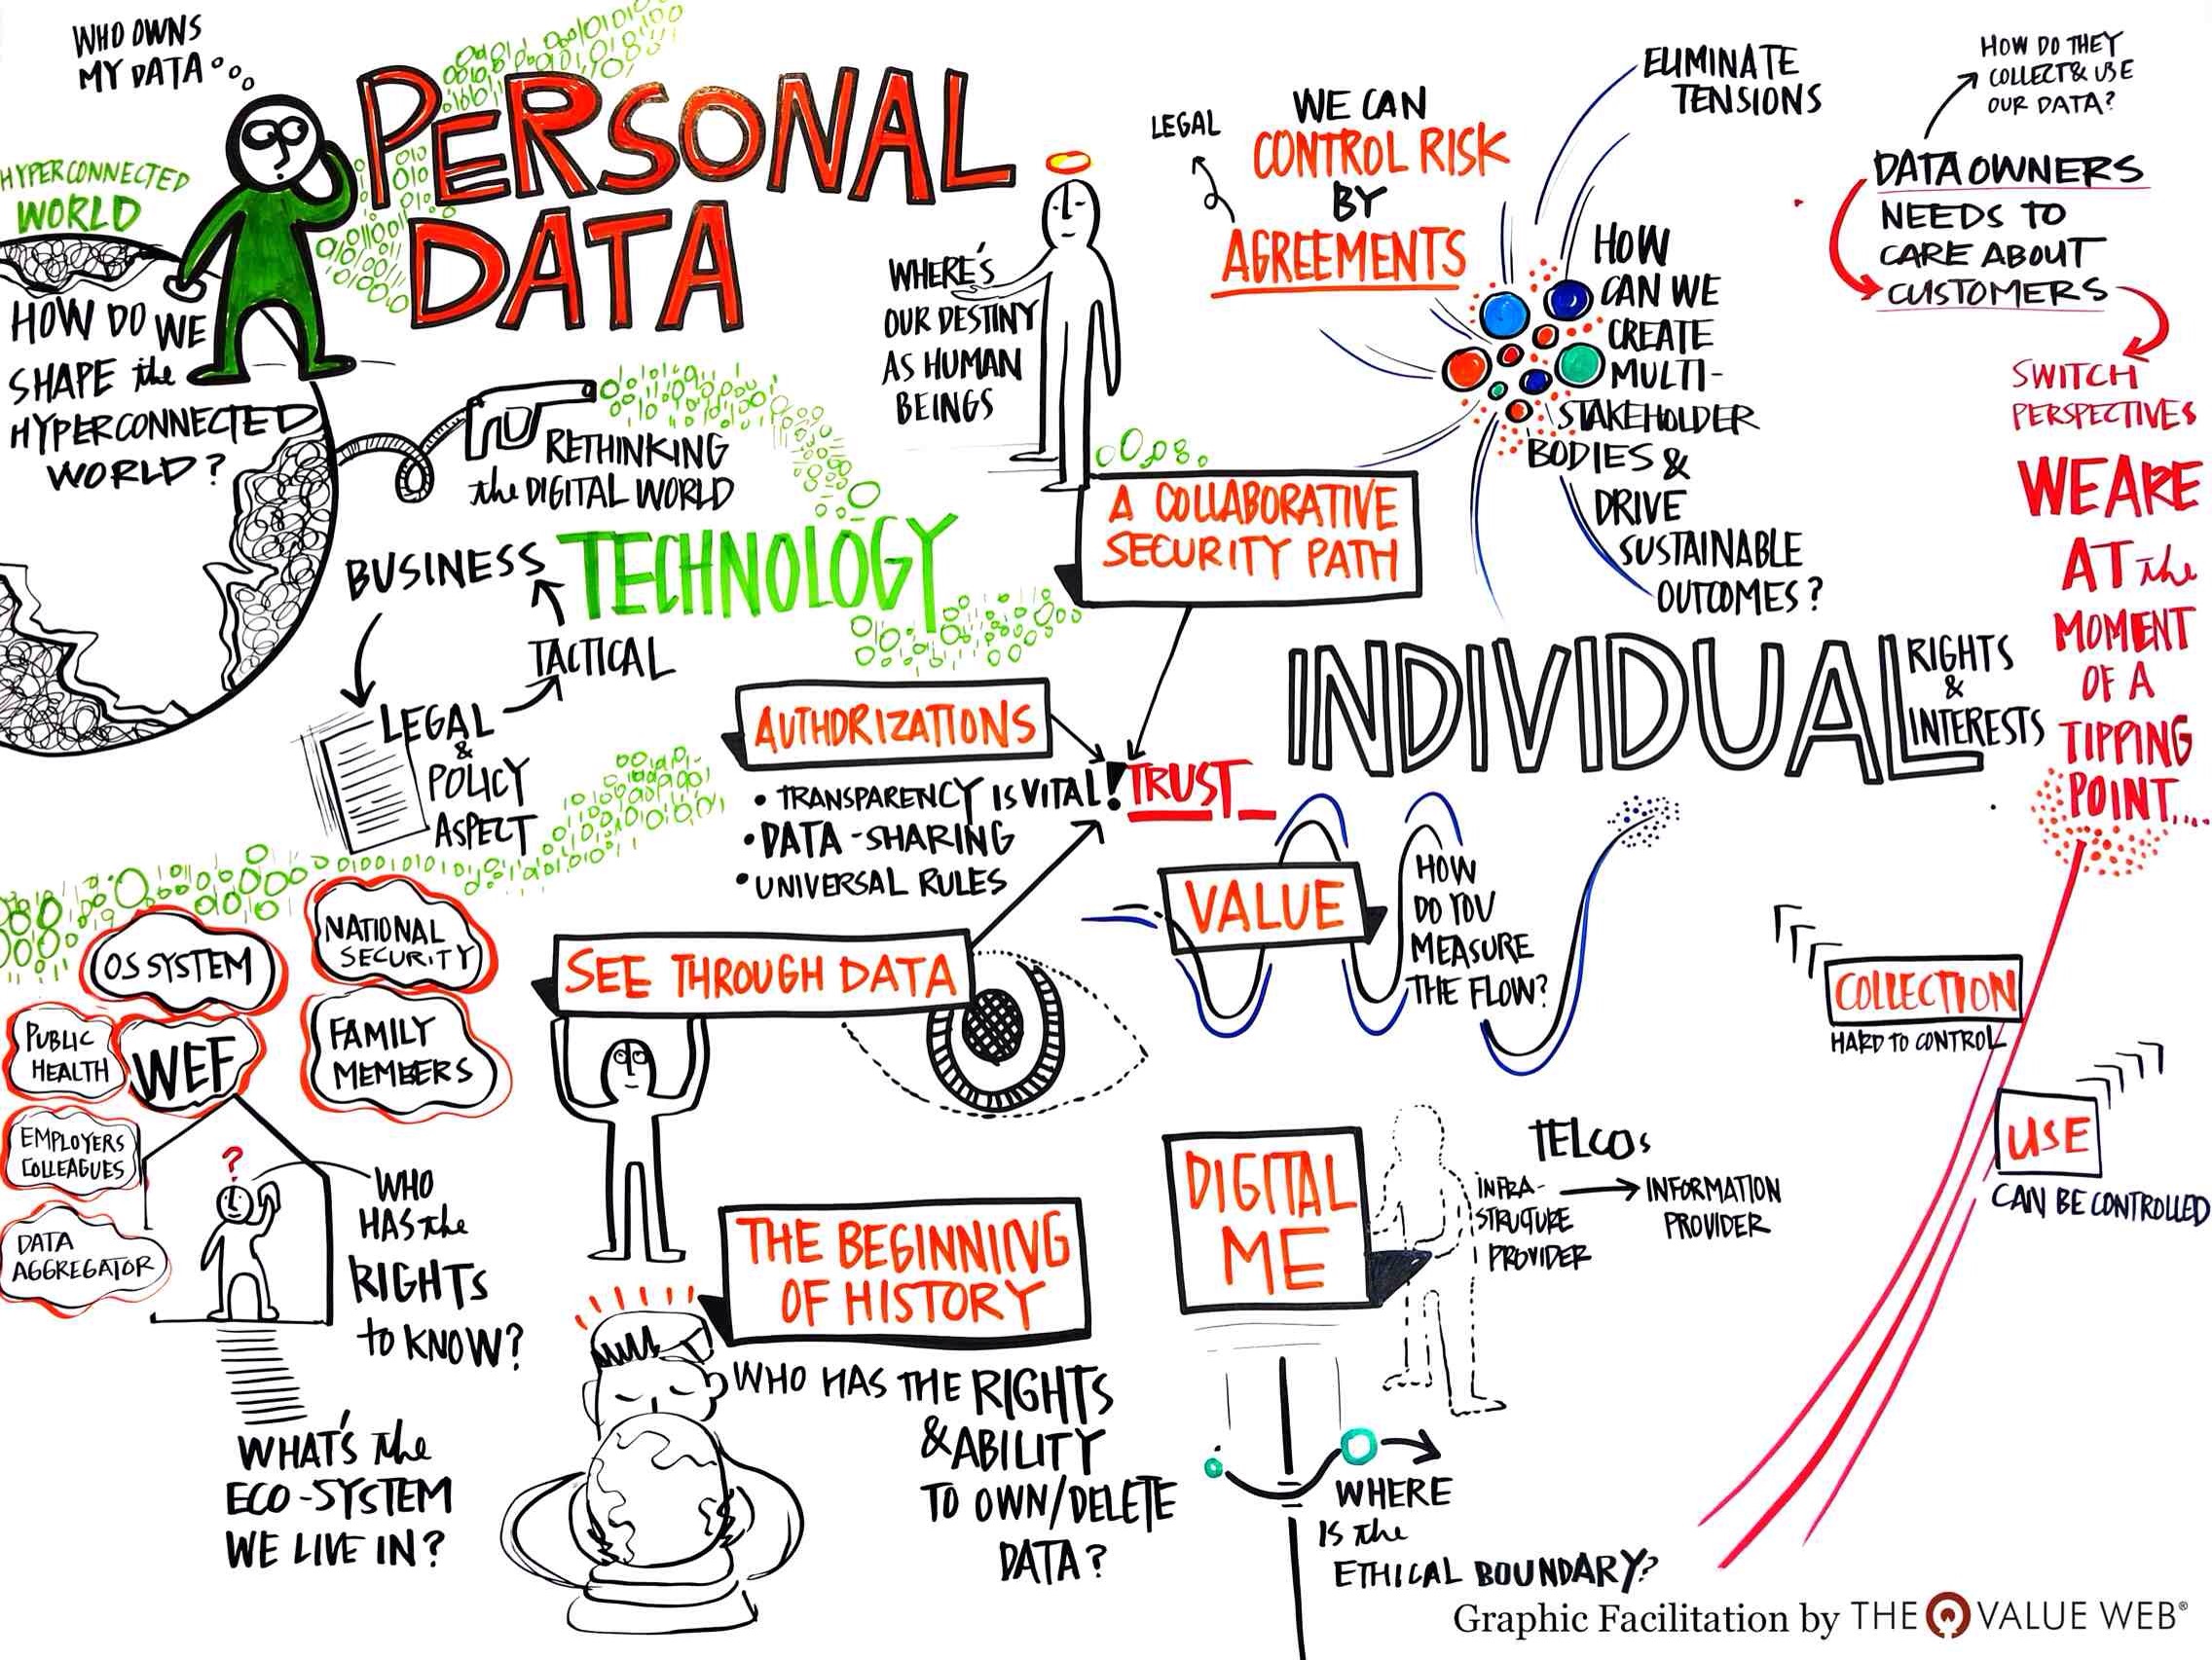 WHO OWNS
MY DATA
HYPERCONNECTED
WORLD
PERSONAL
DATA
HOW DO WE
SHAPE the
HYPERCONNECTED
WORLD?
RETHINKING
the DIGITAL WORLD
BUSINESS
TECHNOLOGY
TACTICAL
LEGAL
&
POLICY
ASPECT
WHERE'S
OUR DESTINY
AS HUMAN
BEINGS
LEGAL
WE CAN
CONTROL RISK
BY
AGREEMENTS
A COLLABORATIVE
SECURITY PATH
ELIMINATE
TENSIONS
HOW
CAN WE
CREATE
MULTI-
STAKEHOLDER
BODIES &
DRIVE
SUSTAINABLE
OUTCOMES?
HOW DO THEY
COLLECT & USE
OUR DATA?
DATA OWNERS
NEEDS TO
CARE ABOUT
CUSTOMERS
SWITCH
PERSPECTIVES
WE ARE
AT the
MOMENT
OF A
TIPPING
POINT....
INDIVIDUAL
RIGHTS
&
INTERESTS
AUTHORIZATIONS
• TRANSPARENCY IS VITAL!
• DATA-SHARING
• UNIVERSAL RULES
TRUST
VALUE
HOW
DO YOU
MEASURE
THE FLOW?
COLLECTION
HARD TO CONTROL
USE
CAN BE CONTROLLED
OS SYSTEM
NATIONAL
SECURITY
PUBLIC
HEALTH
WEF
FAMILY
MEMBERS
EMPLOYERS
COLLEAGUES
DATA
AGGREGATOR
?
WHO
HAS the
RIGHTS
to KNOW?
WHAT'S the
ECO-SYSTEM
WE LIVE IN?
SEE THROUGH DATA
THE BEGINNING
OF HISTORY
WHO HAS THE RIGHTS
& ABILITY
TO OWN/DELETE
DATA?
DIGITAL
ME
TELCOs
INFRA-
STRUCTURE
PROVIDER
INFORMATION
PROVIDER
WHERE
IS the
ETHICAL BOUNDARY?
Graphic Facilitation by THE VALUE WEB®